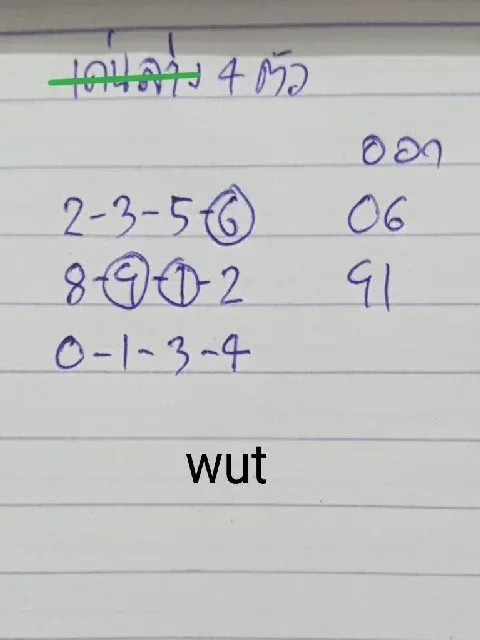 เด่นล่าง 4 ตัว
ออก
2-3-5-6 06
8-9-1-2 91
0-1-3-4
wut